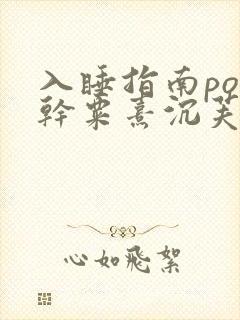 入睡指南po
幹粟熹沉芙
心如飛絮